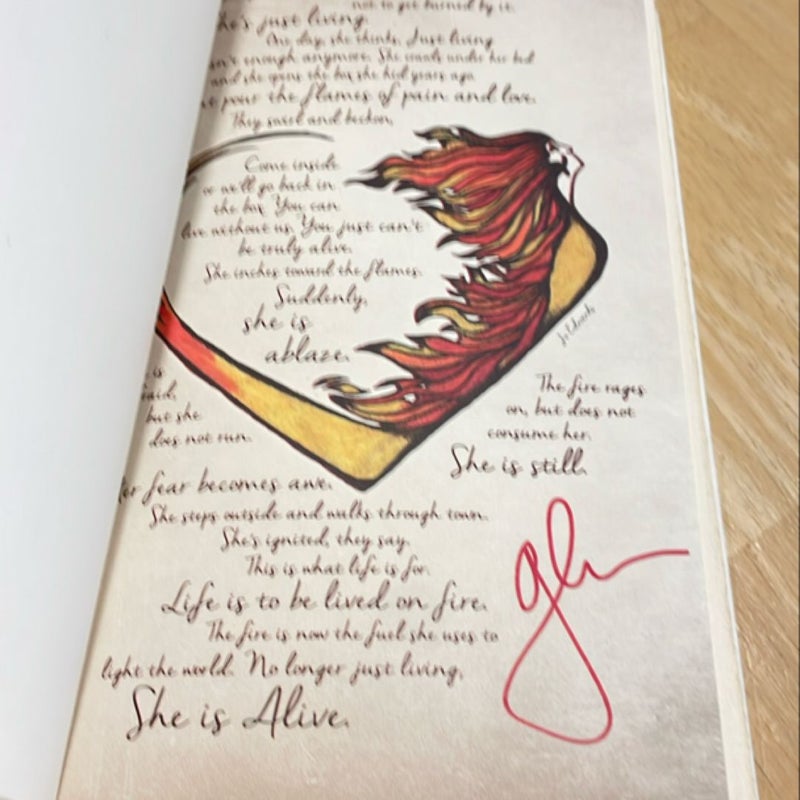 not to get burned by it.
he's just living.
One day, she thinks, Just living
isn't enough anymore. She crawls under her bed
and she opens the box she hid years ago
pour the flames of pain and love.
They swirl and beckon,
Come inside
or we'll go back in
the box. You can
live without us. You just can't
be truly alive.
She inches toward the flames.
Suddenly,
she is
ablaze.
Jo Edwards
is
but she
does not run.
The fire rages
on, but does not
consume her.
She is still.
er fear becomes awe.
She steps outside and walks through town.
She's ignited, they say.
This is what life is for.
Life is to be lived on fire.
The fire is now the fuel she uses to
light the world. No longer just living,
She is Alive.